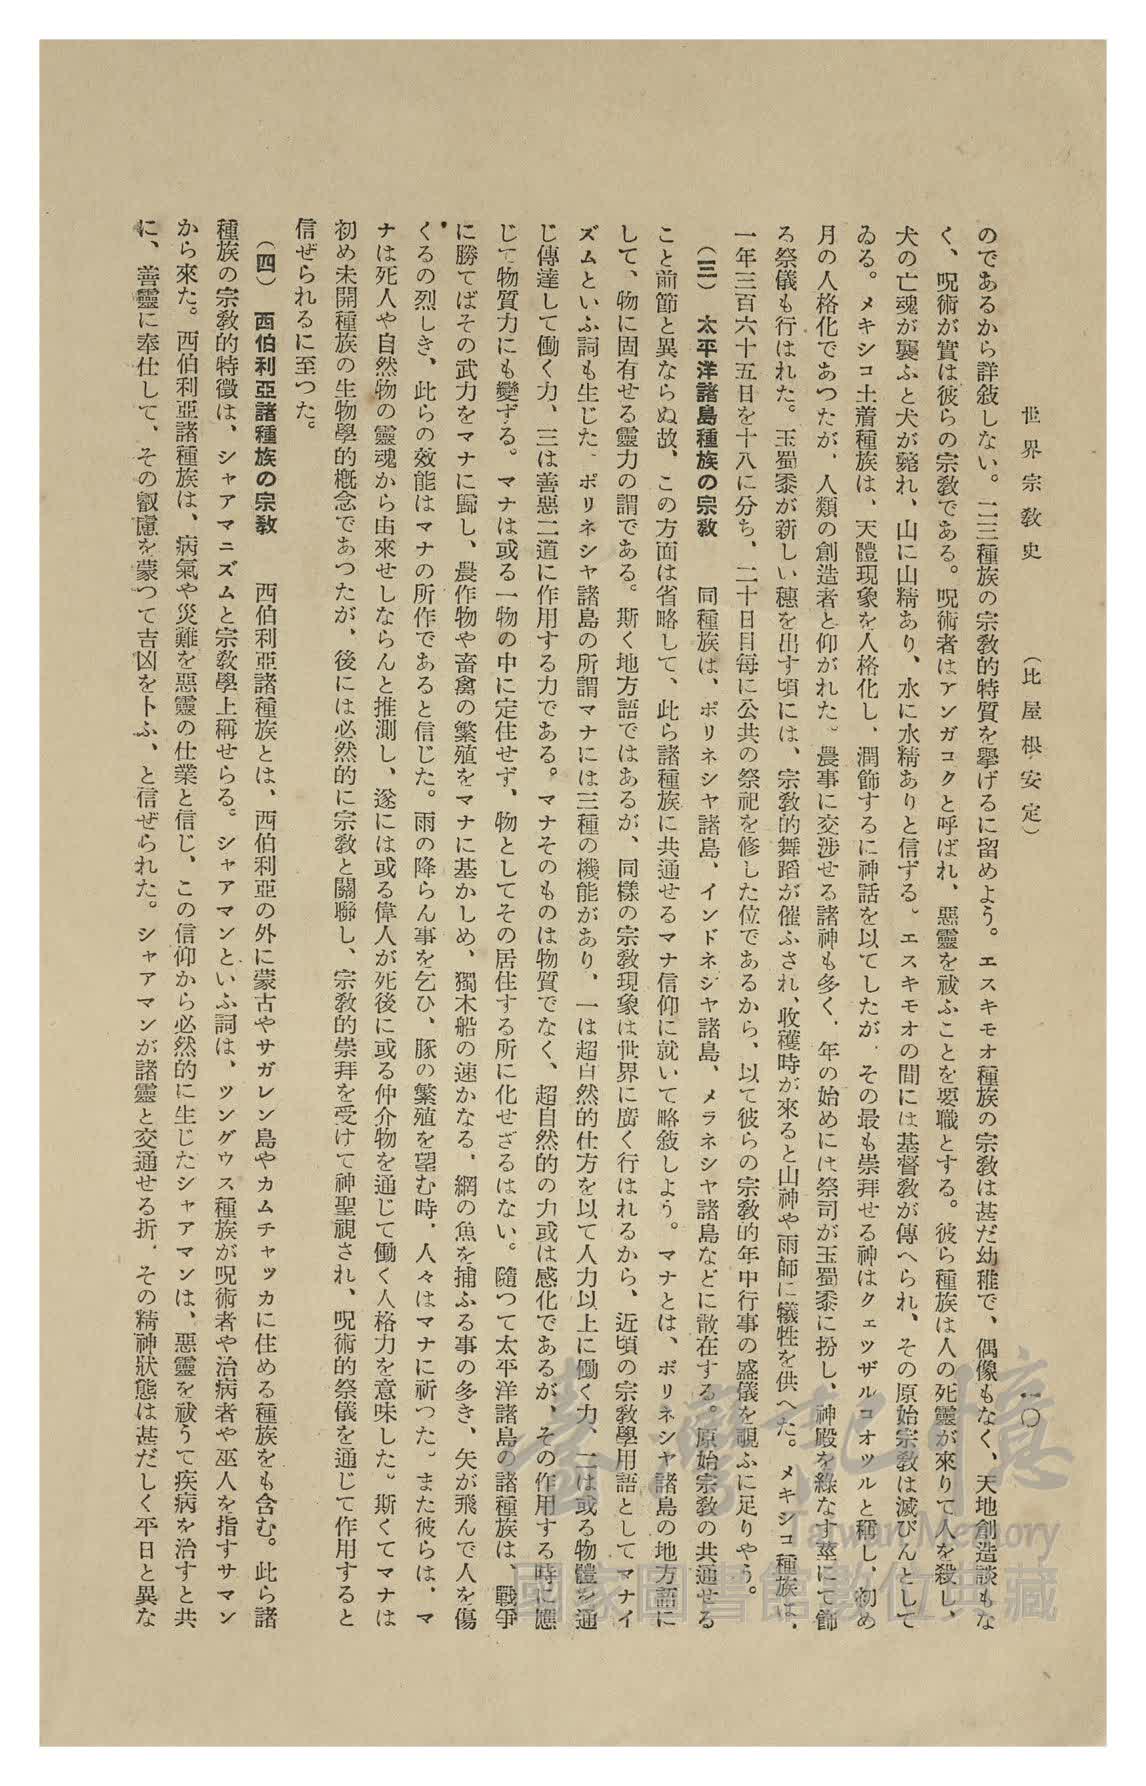 世界宗教史　（比屋根安定）　一〇
のであるから詳敍しない。二三種族の宗教的特質を擧げるに留めよう。エスキモオ種族の宗教は甚だ幼稚で、偶像もなく、天地創造談もな
く、呪術が實は彼らの宗教である。呪術者はアンガコクと呼ばれ、惡靈を祓ふことを要職とする。彼ら種族は人の死靈が來りて人を殺し、
犬の亡魂が襲ふと犬が斃れ、山に山精あり、水に水精ありと信ずる。エスキモオの間には基督教が傳へられ、その原始宗教は滅びんとして
ゐる。メキシコ土着種族は、天體現象を人格化し、潤飾するに神話を以てしたが、その最も崇拜せる神はクェッザルコオツルと稱し、初め
月の人格化であつたが、人類の創造者と仰がれた。農事に交渉せる諸神も多く、年の始めには祭司が玉蜀黍に扮し、神殿を綠なす莖にて飾
る祭儀も行はれた。玉蜀黍が新しい穗を出す頃には、宗教的舞蹈が催ふされ、收穫時が來ると山神や雨師に犧牲を供へた。メキシコ種族は、
一年三百六十五日を十八に分ち、二十日目毎に公共の祭祀を修した位であるから、以て彼らの宗教的年中行事の盛儀を覗ふに足りやう。
（三）　太平洋諸島種族の宗教　同種族は、ポリネシヤ諸島、インドネシヤ諸島、メラネシヤ諸島などに散在する。原始宗教の共通せる
こと前節と異ならぬ故、この方面は省略して、此ら諸種族に共通せるマナ信仰に就いて略敍しよう。マナとは、ポリネシヤ諸島の地方語に
して、物に固有せる靈力の謂である。斯く地方語ではあるが、同樣の宗教現象は世界に廣く行はれるから、近頃の宗教學用語としてマナイ
ズムといふ詞も生じた。ポリネシヤ諸島の所謂マナには三種の機能があり、一は超自然的仕方を以て人力以上に働く力、二は或る物體を通
じ傳達して働く力、三は善惡二道に作用する力である。マナそのものは物質でなく、超自然的の力或は感化であるが、その作用する時に應
じて物質力にも變ずる。マナは或る一物の中に定住せず、物としてその居住する所に化せざるはない。隨つて太平洋諸島の諸種族は、戰爭
に勝てばその武力をマナに歸し、農作物や畜禽の繁殖をマナに基かしめ、獨木船の速かなる、網の魚を捕ふる事の多き、矢が飛んで人を傷
くるの烈しき、此らの效能はマナの所作であると信じた。雨の降らん事を乞ひ、豚の繁殖を望む時、人々はマナに祈つた。また彼らは、マ
ナは死人や自然物の靈魂から由來せしならんと推測し、遂には或る偉人が死後に或る仲介物を通じて働く人格力を意味した。斯くてマナは
初め未開種族の生物學的概念であつたが、後には必然的に宗教と關聯し、宗教的崇拜を受けて神聖視され、呪術的祭儀を通じて作用すると
信ぜられるに至つた。
（四）　西伯利亞諸種族の宗教　西伯利亞諸種族とは、西伯利亞の外に蒙古やサガレン島やカムチャッカに住める種族をも含む。此ら諸
種族の宗教的特徵は、シャアマニズムと宗教學上稱せらる。シャアマンといふ詞は、ツングウス種族が呪術者や治病者や巫人を指すサマン
から來た。西伯利亞諸種族は、病氣や災難を惡靈の仕業と信じ、この信仰から必然的に生じたシャアマンは、惡靈を祓うて疾病を治すと共
に、善靈に奉仕して、その叡慮を蒙つて吉凶を卜ふ、と信ぜられた。シャアマンが諸靈と交通せる折、その精神狀態は甚だしく平日と異な
臺灣記憶
Taiwan Memory
國家圖書館數位典藏